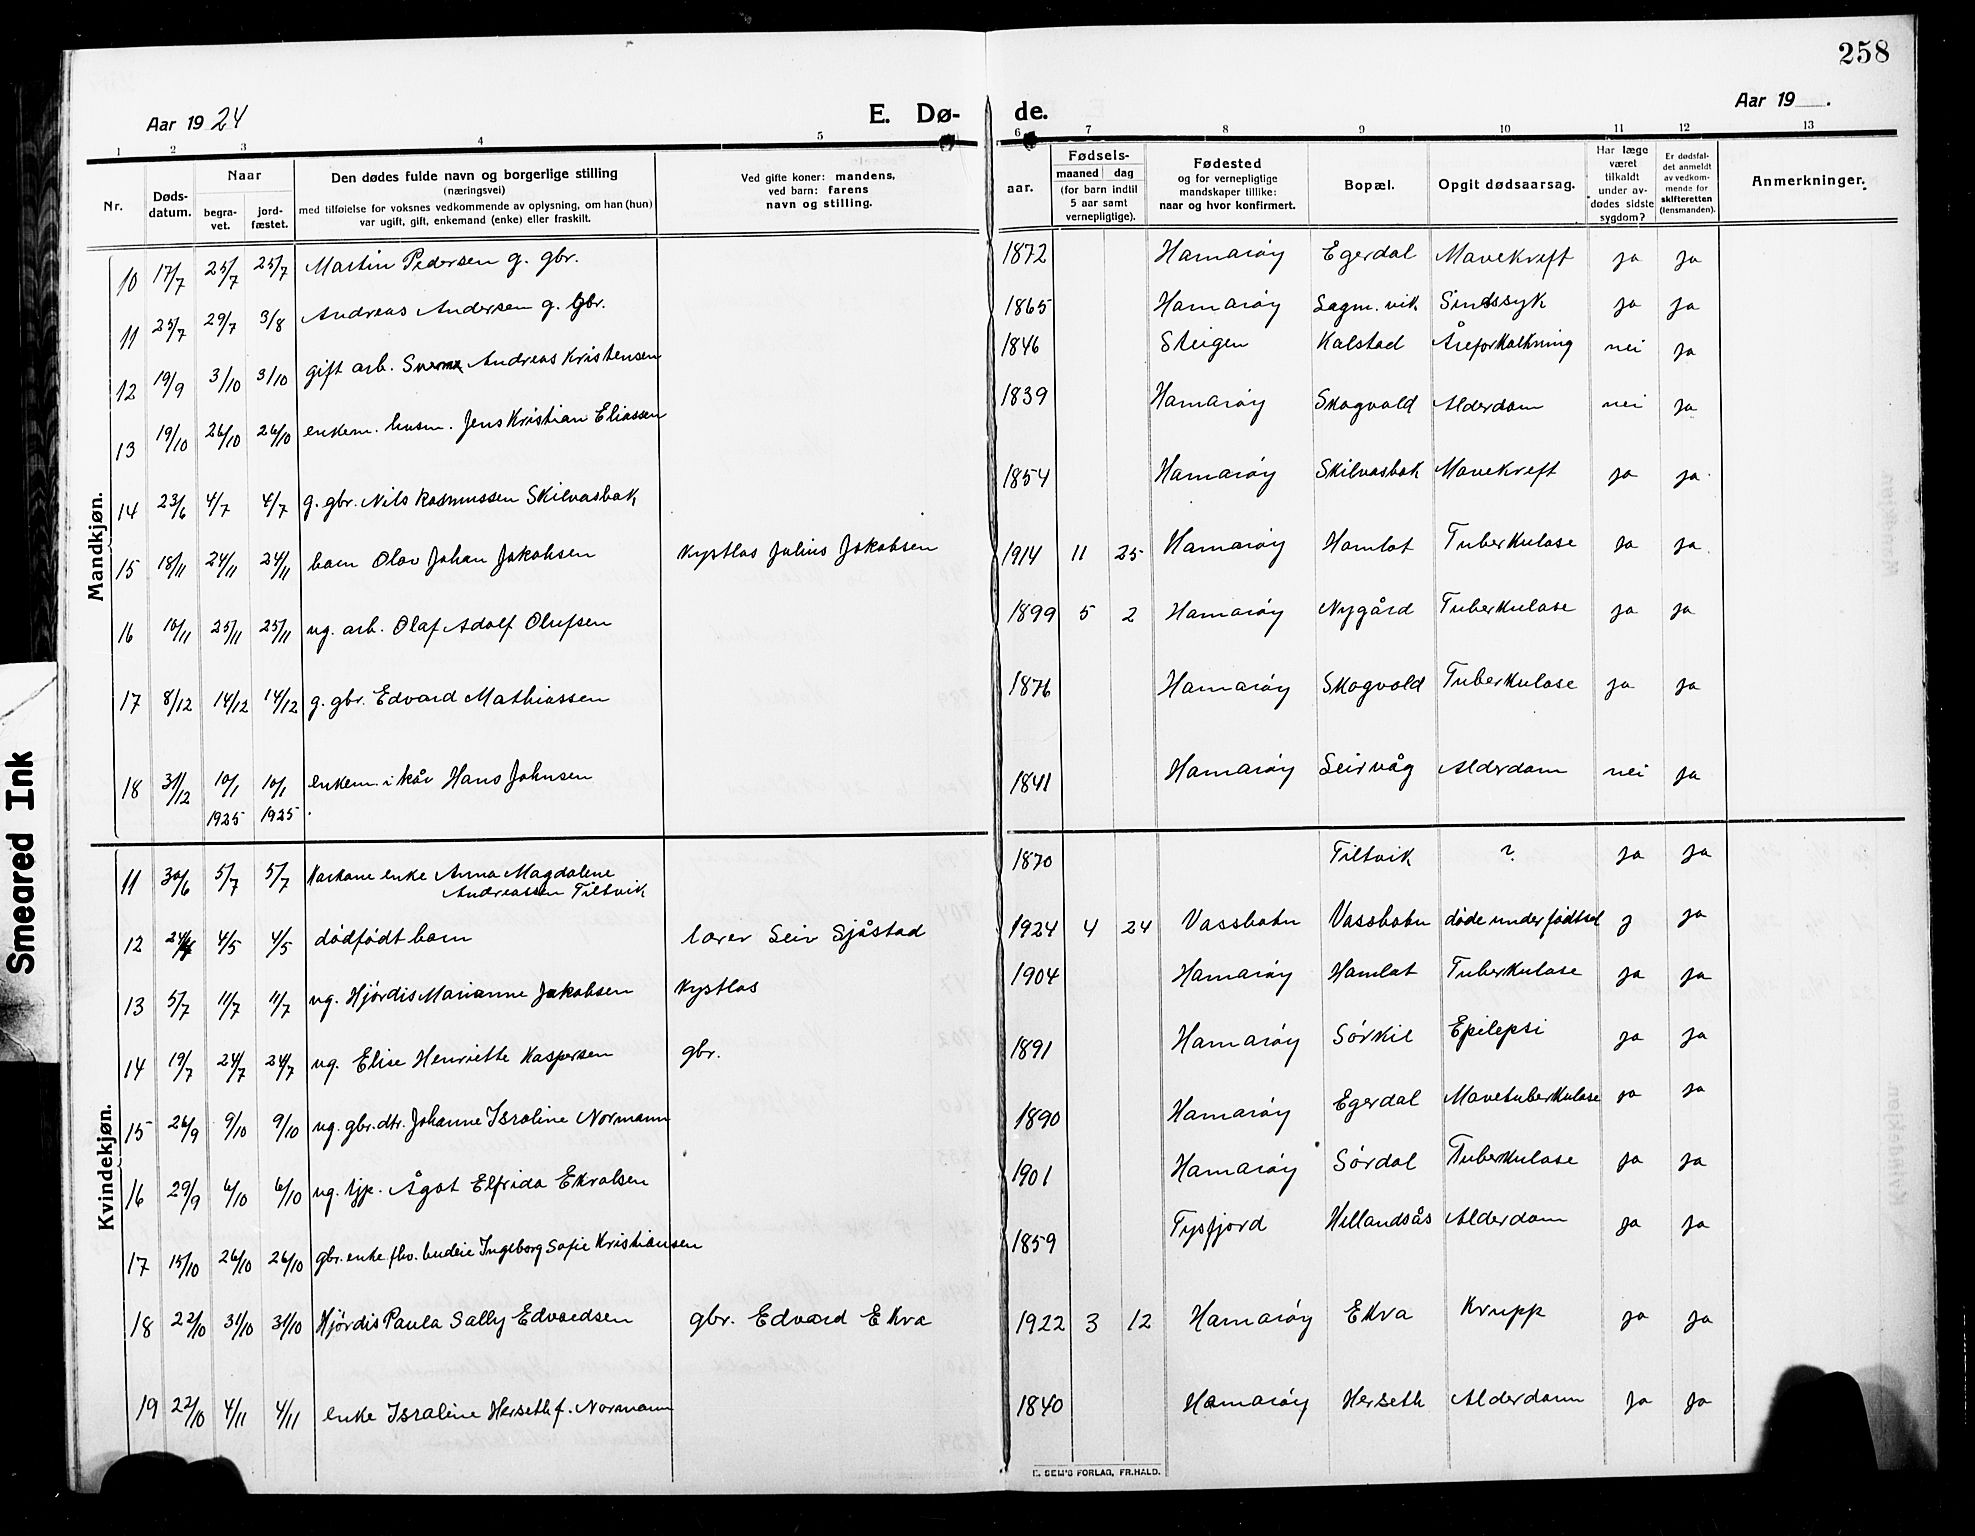 258
Aar 1924 E. Dø- de. Aar 19 .
1 2 3 4 5 6 7 8 9 10 11 12 13
Nr. Døds-datum. Naar begra-vet. jord-fæstet. Den dødes fulde navn og borgerlige stilling (næringsvei) med tilføielse for voksnes vedkommende av oplysning, om han (hun) var ugift, gift, enkemand (enke) eller fraskilt. Ved gifte koner: mandens, ved barn: farens navn og stilling. aar. Fødsels- maaned dag (for barn indtil 5 aar samt vernepligtige). Fødested og for vernepligtige mandskaper tillike: naar og hvor konfirmert. Bopæl. Opgit dødsaarsag. Har læge været tilkaldt under av-dødes sidste sygdom? Er dødsfal-det anmeldt av vedkom-mende for skifteretten (lensmanden). Anmerkninger.
Mandkjøn.
10 17/7 25/7 25/7 Martin Pedersen g. gbr. 1872 Hamarøy Egerdal Mavekreft ja ja
11 25/7 29/7 3/8 Andreas Andersen g. gbr. 1865 Hamarøy Lagm. vik Sindssyk ja ja
12 19/9 3/10 3/10 gift arb. Andreas Kristensen 1846 Steigen Kalstad Åreforkalkning nei ja
13 19/10 26/10 26/10 enkem. husm. Jens Kristian Eliassen 1839 Hamarøy Skogvold Alderdom nei ja
14 23/6 4/7 4/7 g. gbr. Nils Rasmussen Skilvasbak 1854 Hamarøy Skilvasbak Mavekreft ja ja
15 18/11 24/11 24/11 barn Olav Johan Jakobsen Kystlos Julius Jakobsen 1914 11 25 Hamarøy Hamlot Tuberkulose ja ja
16 10/11 25/11 25/11 ug. arb. Olaf Adolf Olufsen 1899 5 2 Hamarøy Nygård Tuberkulose ja ja
17 8/12 14/12 14/12 g. gbr. Edvard Mathiassen 1876 Hamarøy Skogvold Tuberkulose ja ja
18 31/12 10/1 1925 10/1 1925 enkem. i kår Hans Johnsen 1841 Hamarøy Leirvåg Alderdom nei ja
Kvindekjøn.
11 30/6 5/7 5/7 Karkone enke Anna Magdalene Andreassen Tiltvik 1870 Tiltvik ? ja ja
12 24/4 4/5 4/5 dødfødt barn lærer Leir Sjåstad 1924 4 24 Vassbotn Vassbotn døde under fødtsel j ja
13 5/7 11/7 11/7 ug. Hjørdis Marianne Jakobsen Kystlos 1904 Hamarøy Hamlot Tuberkulose ja ja
14 19/7 24/7 24/7 ug. Elise Henriette Kaspersen gbr. 1891 Hamarøy Sørkil Epilepsi ja ja
15 26/9 9/10 9/10 ug. gbr. dtr. Johanne Israline Normann 1890 Hamarøy Egerdal Mavetuberkulose ja ja
16 29/9 6/10 6/10 ug. tjp. Ågot Elfrida Ekralsen 1901 Hamarøy Sørdal Tuberkulose ja ja
17 15/10 26/10 26/10 gbr. enke fhv. budeie Ingeborg Sofie Kristiansen 1859 Tysfjord Hillandsås Alderdom ja ja
18 22/10 31/10 31/10 Hjørdis Paula Sally Edvardsen gbr. Edvard Ekra 1922 3 12 Hamarøy Ekra Krupp ja ja
19 22/10 4/11 4/11 enke Israline Herseth f. Normann 1840 Hamarøy Herseth Alderdom ja ja
E. SEM'S FORLAG, FR.HALD.
Smeared Ink